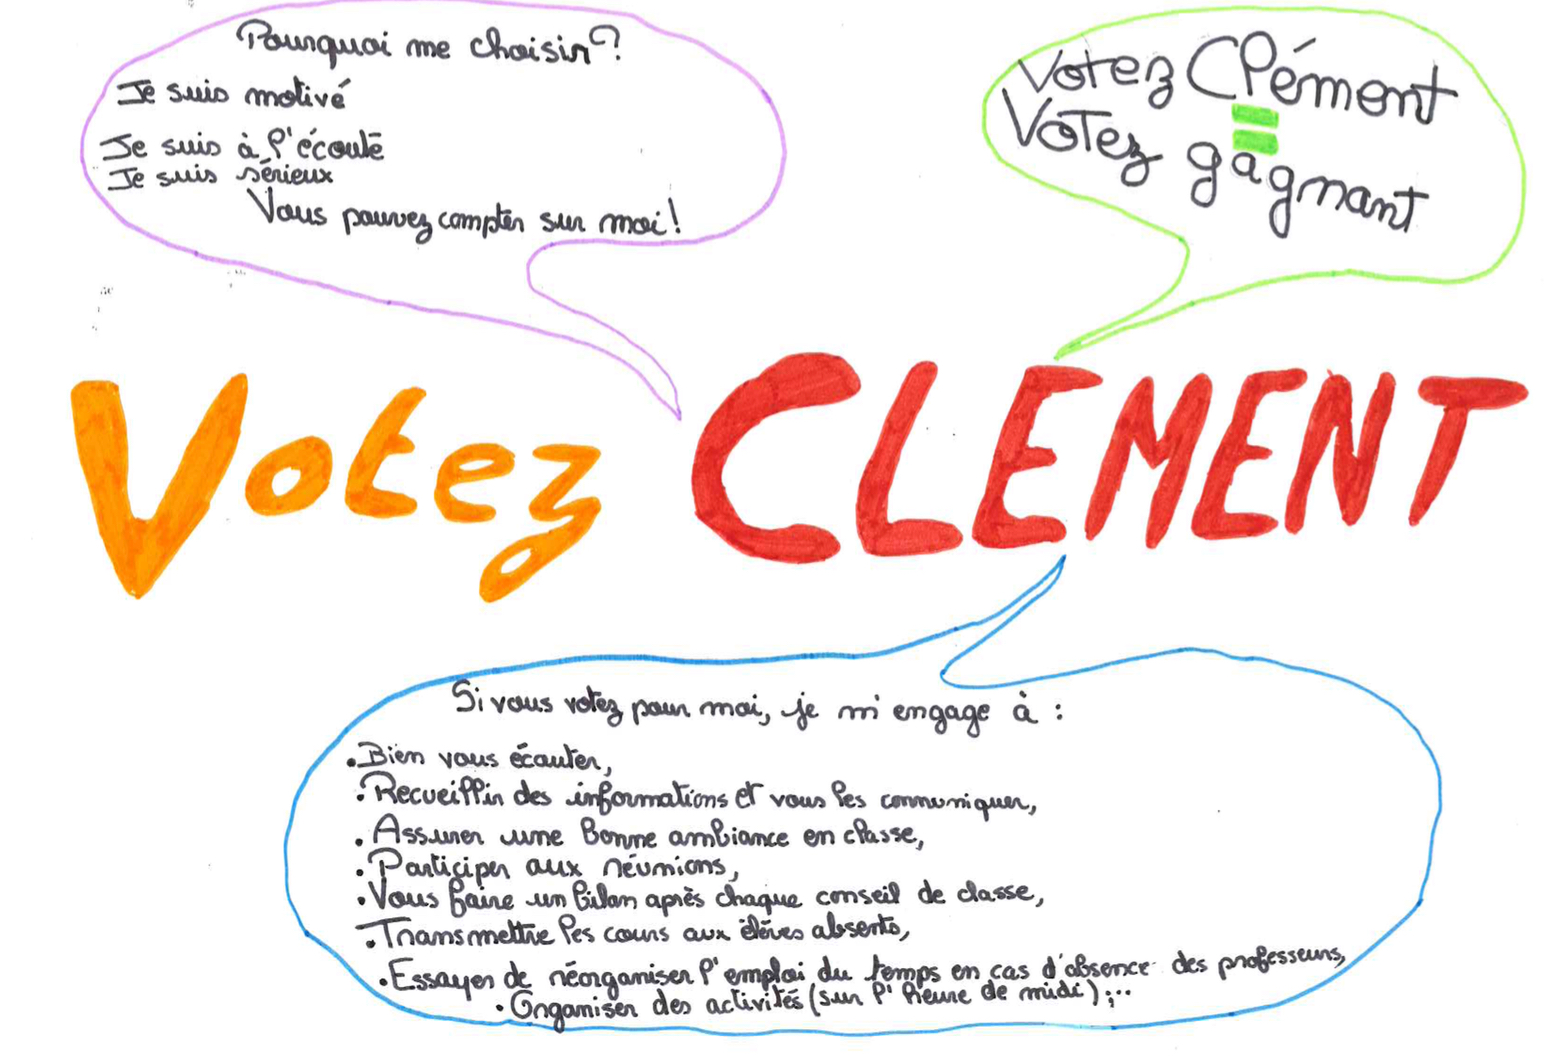 Pourquoi me choisir?
Je suis motivé
Je suis à l'écoute
Je suis sérieux
Vous pouvez compter sur moi!
Votez Clément
=
Votez gagnant
Votez CLEMENT
Si vous votez pour moi, je m'engage à :
•Bien vous écouter,
•Recueillir des informations et vous les communiquer,
•Assurer une bonne ambiance en classe,
•Participer aux réunions,
•Vous faire un bilan après chaque conseil de classe,
•Transmettre les cours aux élèves absents,
•Essayer de réorganiser l'emploi du temps en cas d'absence des professeurs,
•Organiser des activités (sur l'heure de midi);...